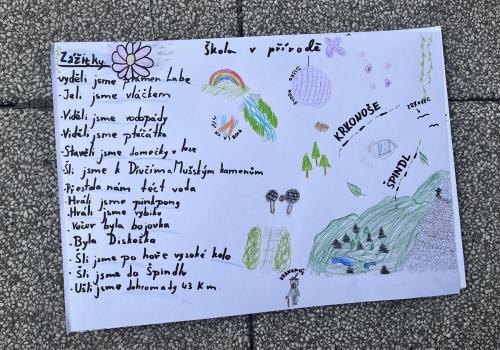 Škola v přírodě
Zážitky
-vyděli jsme pramen Labe
-Jeli jsme vláčkem
Viděli jsme vodopády
Viděli jsme ptáčátka
-Stavěli jsme domečky v lese
Šli jsme k Dívčím a Mužským kamenům
-Přestala nám téct voda
-Hráli jsme pinkpong
-Hráli jsme rybiku
-Večer byla bojovka
-Byla Diskotéka
-Šli jsme po hoře vysoké kolo
-Šli jsme do Špindlu
-Ušli jsme dohromady 43 Km.
KRKONOŠE
SPINDL